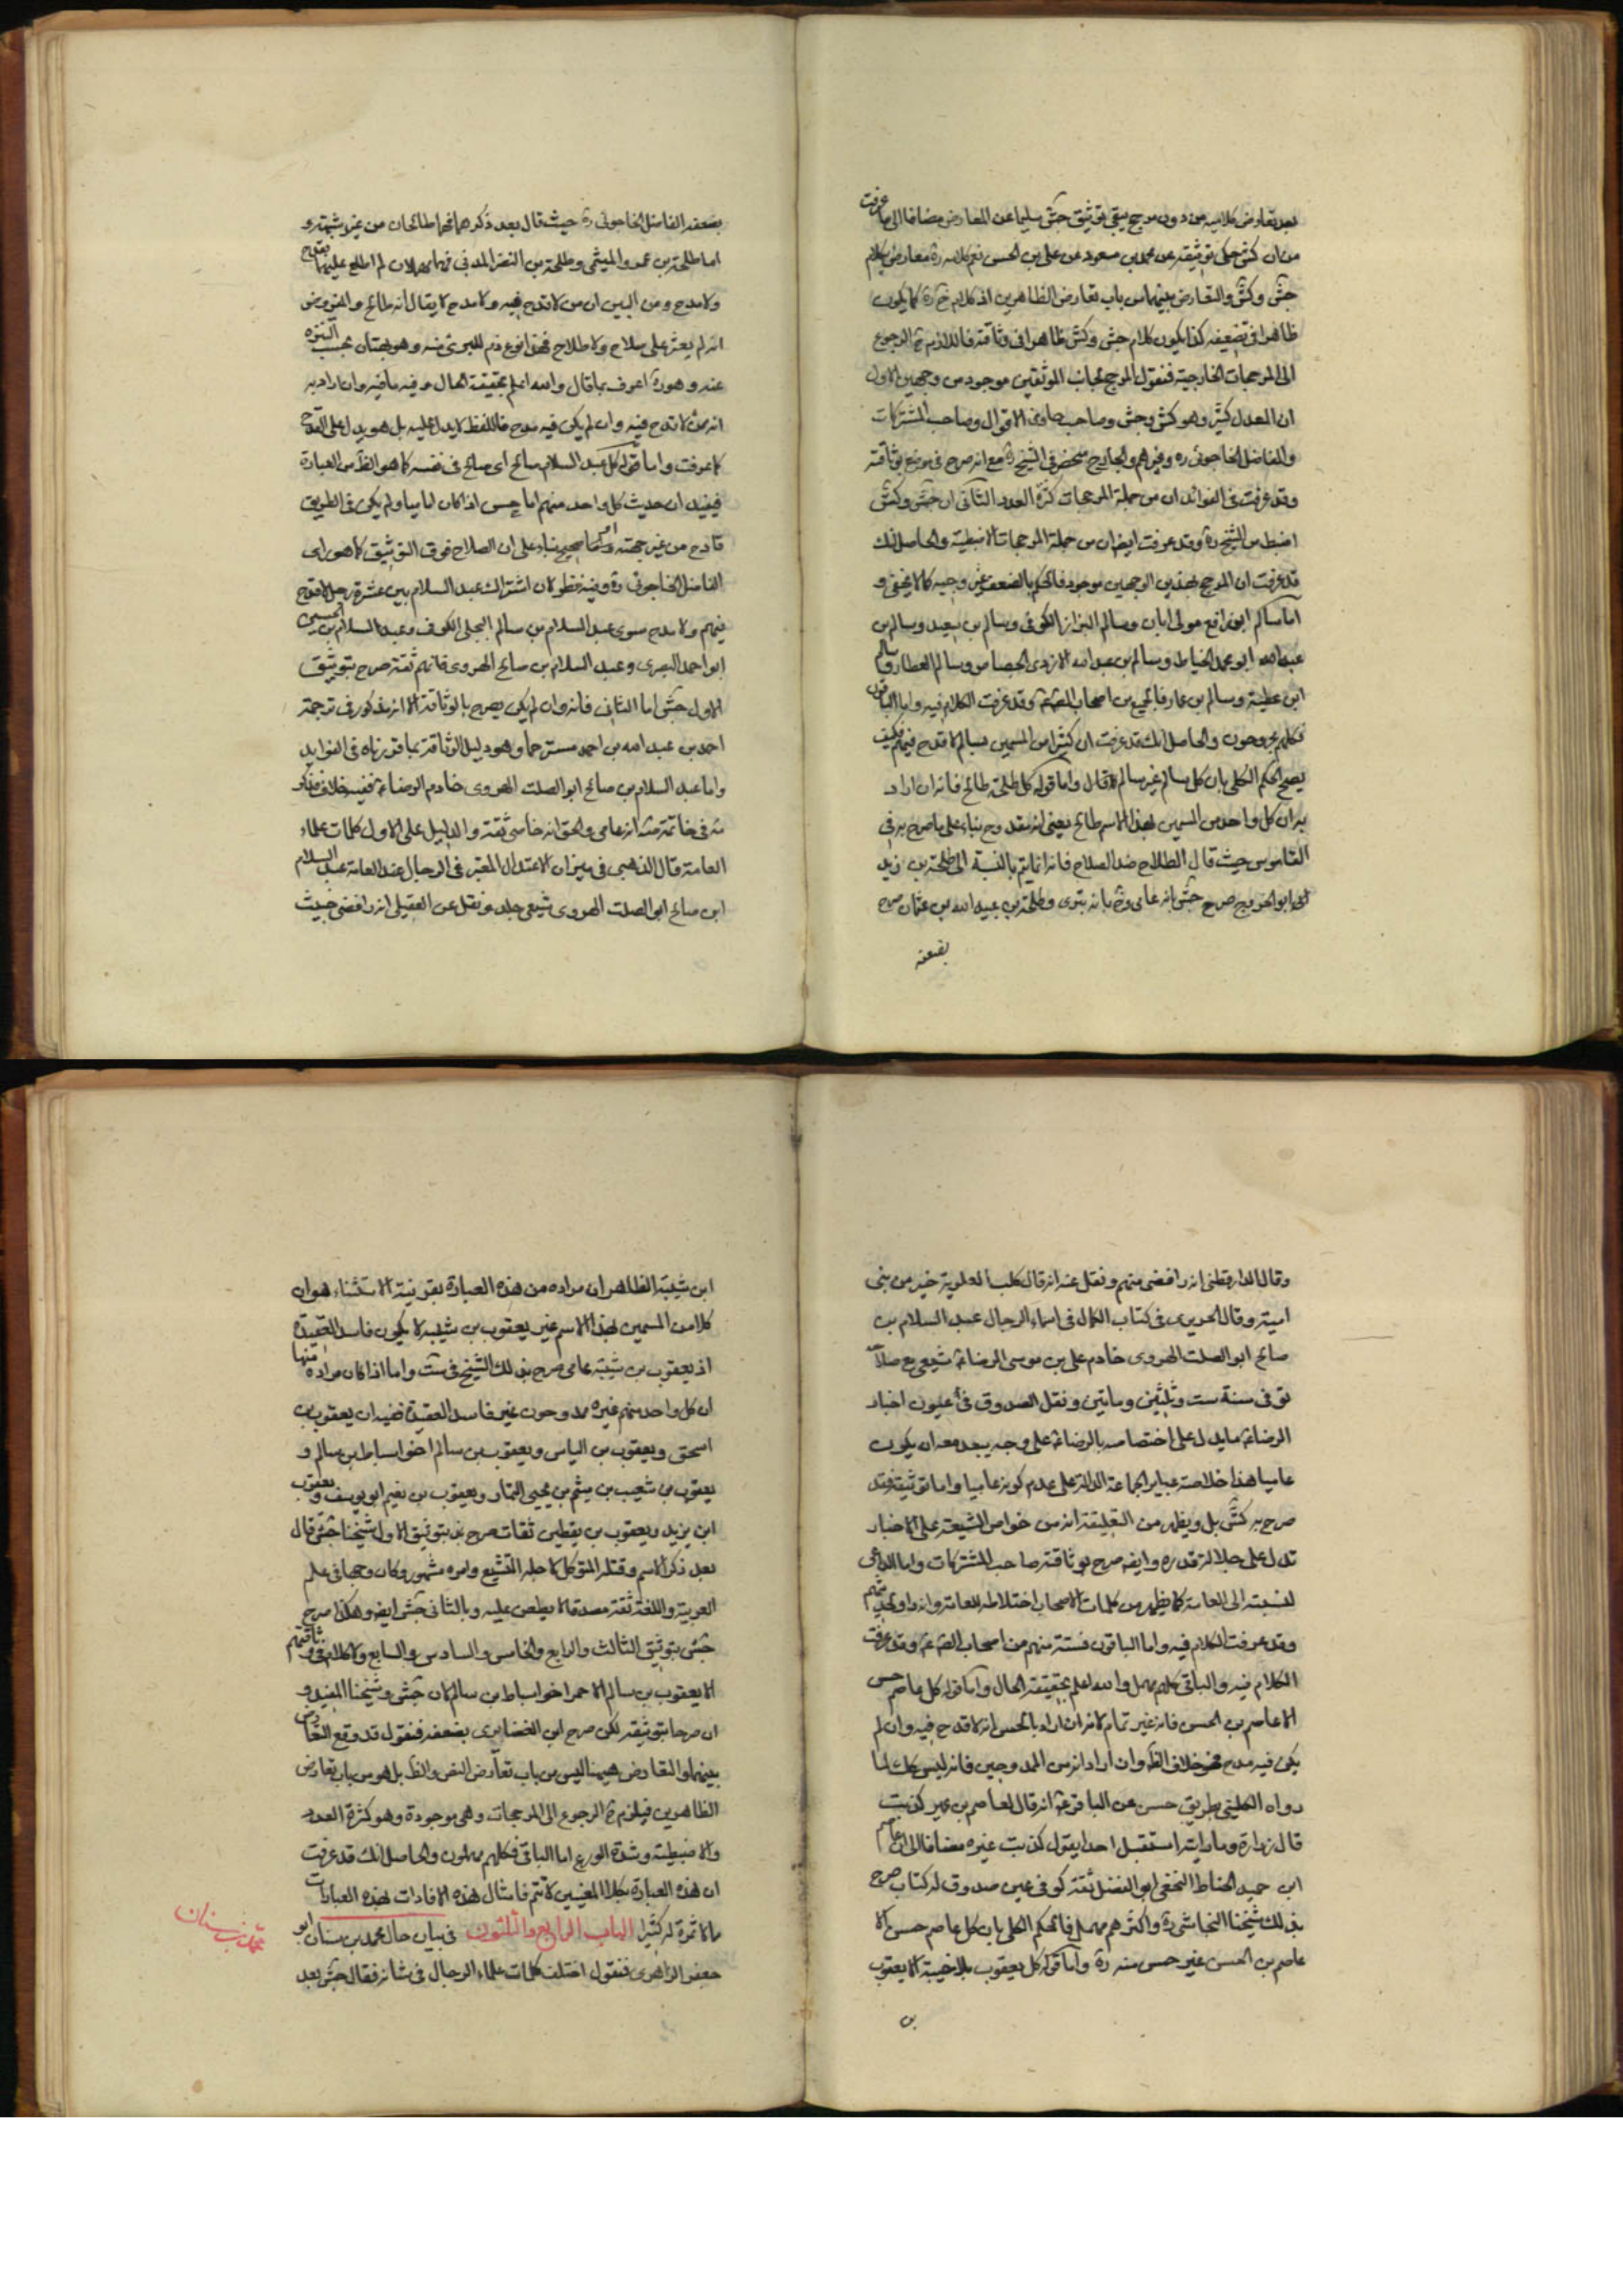 بعد تعارض كلاميه من دون مرجح يبقى توثيق جش سليما عن المعارض مضافا الى ما عرفت
من ان كش حكى توثيقه عن محمد بن مسعود عن على بن الحسن نعم كلامه ره معارض بكلام
جش وكش والتعارض بينهما من باب تعارض الظاهرين اذ كلام خ ره كما يكون
ظاهرا فى تضعيفه كذا يكون كلام جش وكش ظاهرا فى وثاقته فاللازم ح الرجوع
الى المرجحات الخارجية فنقول المرجح بجانب الموثقين موجود من وجهين الاول
ان المعدل كثير وهو كش وجش وصاحب حاوى الاقوال وصاحب المشتركات
والفاضل الخاجوئى ره وغيرهم والجارح منحصر فى الشيخ ره مع انه صرح فى موضع بوثاقته
وقد عرفت فى الفوائد ان من جملة المرجحات كثرة العدد الثانى ان جش وكش
اضبط من الشيخ ره وقد عرفت ايضا ان من جملة المرجحات الاضبطية والحاصل انك
قد عرفت ان المرجح بهذين الوجهين موجود فالحكم بالضعف غير وجيه كما لا يخفى و
اما سالم ابو رافع مولى ابان وسالم البزاز الكوفى وسالم بن سعيد وسالم بن
عبد الله ابو محمد الخياط وسالم بن عبد الله الازدى الجصاص وسالم العطار وسالم
ابن عطية وسالم بن عمار فالجميع من اصحاب الصادق ع وقد عرفت الكلام فيه واما الباقون
فكلهم مجروحون والحاصل انك قد عرفت ان كثيرا من المسمين بسالم لا قدح فيهم فكيف
يصح الحكم الكلى بان كل سالم غير سالم قال واما قوله كل طلحة طالح فانه ان اراد
به ان كل واحد من المسمين بهذا الاسم طالح بمعنى انه مقدوح بناء على ما صرح به فى
القاموس حيث قال الطلاح ضد الصلاح فانه انما يتم بالنسبة الى طلحة بن زيد
ابو الخزرج صرح جش بانه عامى وخ بانه بترى وطلحة بن عبيد الله بن عثمان صرح
بضعفه
بضعفه الفاضل الخاجوئى ره حيث قال بعد ذكرهما فهما طالحان من غير شبهة و
اما طلحة بن عمرو المیثمى وطلحة بن النضر المدنى فهما مهملان لم اطلع عليهما بقدح
ولا مدح ومن البين ان من لا قدح فيه ولا مدح لا يقال انه طالح والمفروض
انه لم يعثر على صلاح ولا طلاح فهذا نوع ذم للبرئ منه وهو بهتان يجب التنزه
عنه وهو ره اعرف بما قال والله اعلم بحقيقة الحال وفيه ما فيه وان اراد به
انه ممن لا قدح فيه وان لم يكن فيه مدح فاللفظ لا يدل عليه بل هو يدل على القدح
كما عرفت واما قوله كل عبد السلام صالح اى صالح فى نفسه كما هو الظ من العبارة
فيفيد ان حديث كل واحد منهم اما حسن اذا كان اماميا ولم يكن فى الطريق
قادح من غير جهته واما صحيح بناء على ان الصلاح فوق التوثيق كما هو راى
الفاضل الخاجوئى ره وفيه نظر لان اشتراك عبد السلام بين عشرة رجل لا قدح
فيهم ولا مدح سوى عبد السلام بن سالم البجلى الكوفى وعبد السلام بن الحسين
ابو احمد البصرى وعبد السلام بن صالح الهروى فانهم ثقة صرح بتوثيق
الاول جش اما الثانى فانه وان لم يكن يصرح بالوثاقة الا انه مذكور فى ترجمة
احمد بن عبد الله بن احمد مسترحما وهو دليل الوثاقة بما قررناه فى الفوايد
واما عبد السلام بن صالح ابو الصلت الهروى خادم الرضا ع ففيه خلاف فذكر
فى خاتمة انه عامى والحق انه خاصى ثقة والدليل على الاول كلمات علماء
العامة قال الذهبى فى ميزان الاعتدال المعتبر فى الرجال عند العامة عبد السلام
ابن صالح ابو الصلت الهروى شيعى جلد ونقل عن العقيلى انه رافضى خبيث
وقال الدارقطنى انه رافضى متهم ونقل عنه انه قال كلب العلوية خير من بنى
امية وقال الجزرى فى كتاب الكمال فى اسماء الرجال عبد السلام بن
صالح ابو الصلت الهروى خادم على بن موسى الرضا ع شيعى مع صلاحه
توفى سنة ست وثلثين ومأتين ونقل الصدوق فى عيون اخبار
الرضا ع ما يدل على اختصاصه بالرضا ع على وجه يبعد معه ان يكون
عاميا هذا خلاصة عباير الجماعة الدالة على عدم كونه عاميا واما توثيقه فقد
صرح به كش بل ويظهر من التعليقة انه من خواص الشيعة على الاخبار
تدل على جلالة قدره وايضا صرح بوثاقته صاحب المشتركات واما الداعى
لنسبته الى العامة كما يظهر من كلمات الاصحاب اختلاطه للعامة وانه راو لحديثهم
وقد عرفت الكلام فيه واما الباقون فستة منهم من اصحاب الصادق ع وقد عرفت
الكلام فيه والباقى كلهم مهمل والله اعلم بحقيقة الحال واما قوله كل عاصم حسن
الا عاصم بن الحسن فانه غير تمام لانه ان اراد بالحسن انه لا قدح فيه وان لم
يكن فيه مدح فهو خلاف الظ وان اراد انه من الممدوحين فانه ليس كك لما
رواه الكلينى بطريق حسن عن الباقر ع انه قال لعاصم بن عمر كذبت
قال زرارة وما رايته استقبل احدا بقول كذبت غيره مضافا الى ان عاصم
ابن حميد الحناط الحنفى ابو الفضل ثقة كوفى عين صدوق له كتاب صرح
بذلك شيخنا النجاشى ره واكثرهم مهمل فالحكم الكلى بان كل عاصم حسن الا
عاصم بن الحسن غير حسن منه ره واما قوله كل يعقوب بلا خيبة الا يعقوب
بن
ابن شيبة الظاهر ان مراده من هذه العبارة بقرينة الاستثناء هو ان
كلا من المسمين بهذا الاسم غير يعقوب بن شيبة لا يكون فاسد العقيدة
اذ يعقوب بن شيبة عامى صرح بذلك الشيخ فى ست واما اذا كان مراده منها
ان كل واحد منهم غيره ممدوحون غير فاسد العقيدة ففيه ان يعقوب بن
اسحق ويعقوب بن الياس ويعقوب بن سالم اخو اسباط ابن سالم و
يعقوب بن شعيب بن ميثم بن يحيى التمار ويعقوب بن نعيم ابو يوسف ويعقوب
ابن يزيد ويعقوب بن يقطين ثقات صرح بتوثيق الاول شيخنا جش قال
بعد ذكر الاسم وقتله المتوكل لاجله التشيع وامره مشهور وكان وجيها فى علم
العربية واللغة ثقة مصدقا لا يطعن عليه وبالثانى جش ايضا وهكذا صرح
جش بتوثيق الثالث والرابع والخامس والسادس والسابع ولا كلام فى وثاقتهم
الا يعقوب بن سالم الاحمر اخو اسباط بن سالم لان جش وشيخنا المفيد و
ان صرحا بتوثيقه لكن صرح ابن الغضايرى بضعفه فنقول قد وقع التعارض
بينهما والتعارض هيهنا ليس من باب تعارض النص والظ بل هو من باب تعارض
الظاهرين فيلزم ح الرجوع الى المرجحات وهى موجودة وهو كثرة العدد
والاضبطية وشدة الورع اما الباقى فكلهم مهملون والحاصل انك قد عرفت
ان هذه العبارة بكلا المعنيين لا تتم فامثال هذه الافادات بهذه العبارات
مما لا ثمرة له كثيرا الباب الرابع والثلثون فى بيان حال محمد بن سنان ابو
جعفر الزاهرى فنقول اختلف كلمات علماء الرجال فى شانه فقال جش بعد
محمد بن سنان